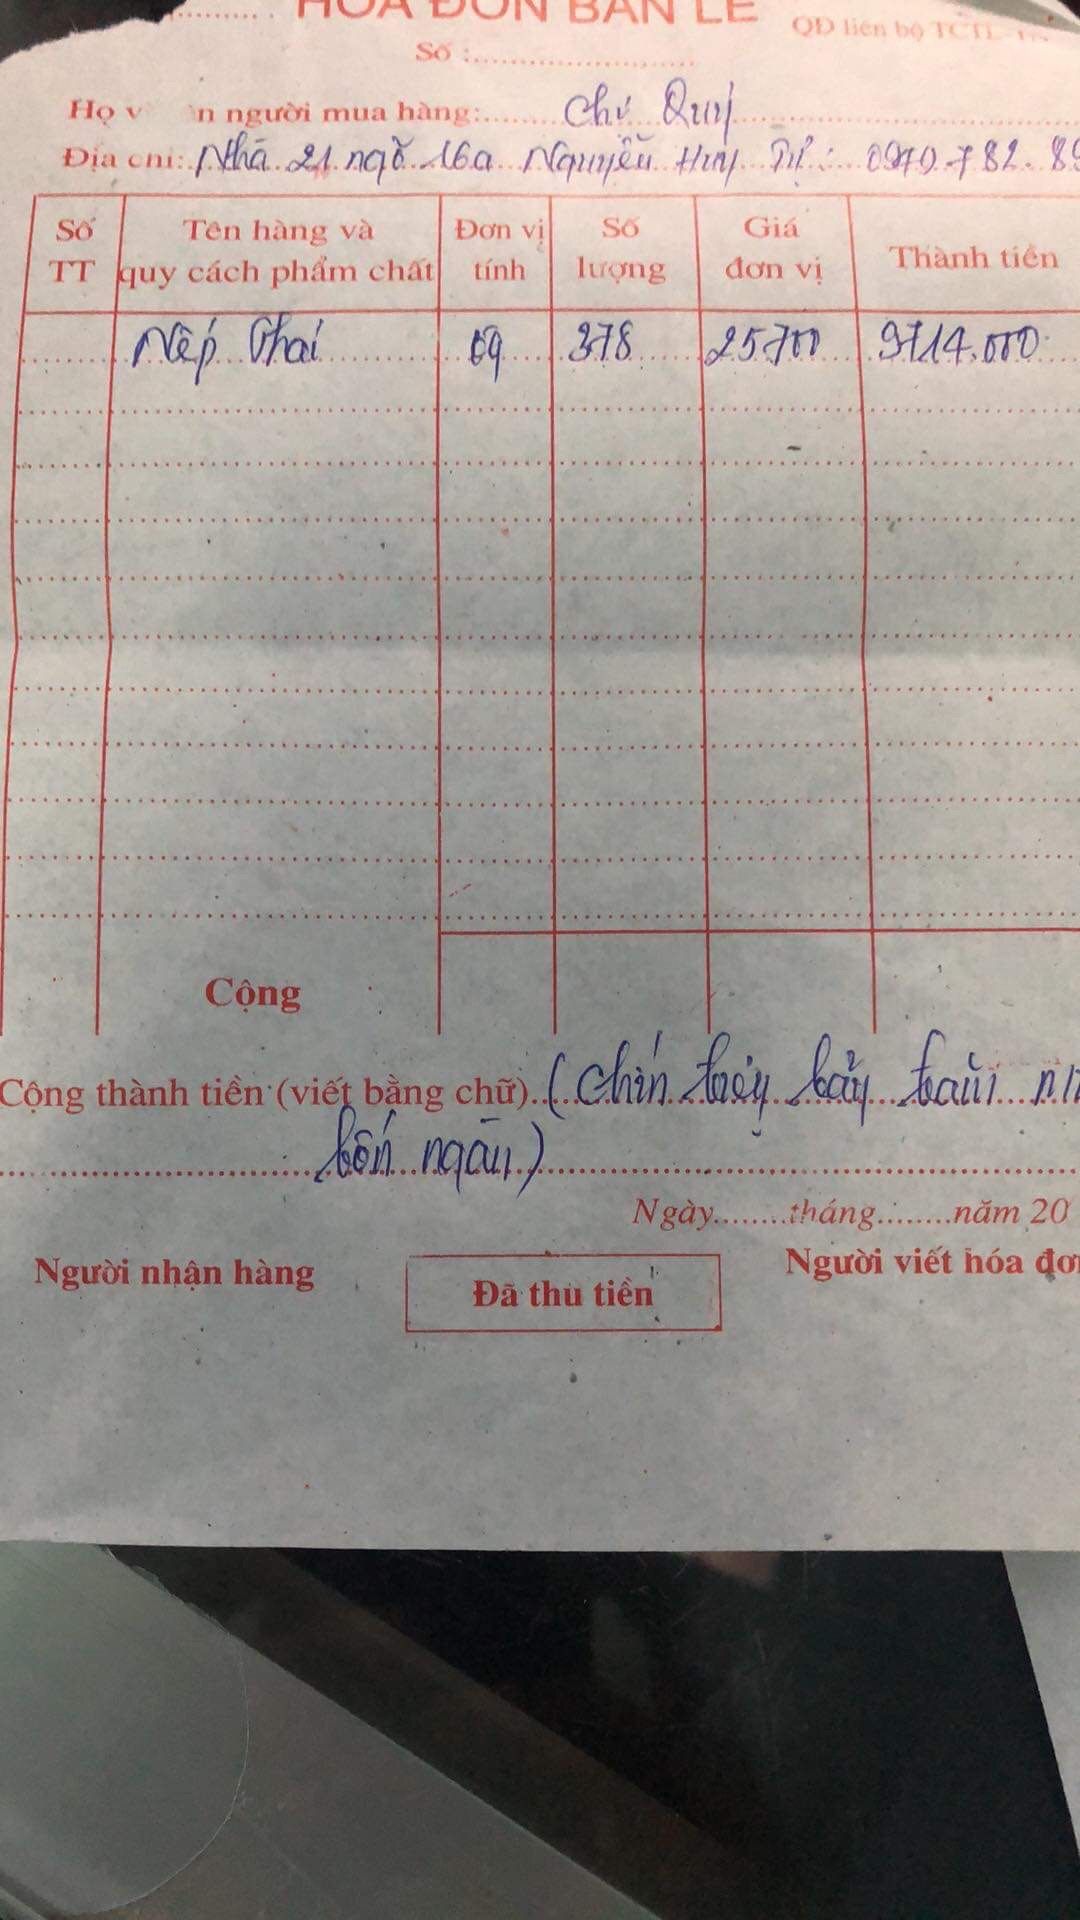 HÓA ĐƠN BÁN LẺ
QĐ liên bộ TCTL-TN
Số :
Họ v n người mua hàng: Chú Quý
Địa chỉ: Nhà 21 ngõ 16a Nguyễn Huy Tự : 0979.782.89
Số TT Tên hàng và quy cách phẩm chất Đơn vị tính Số lượng Giá đơn vị Thành tiền
Nếp Thai 378 25700 9714.000
Cộng
Cộng thành tiền (viết bằng chữ) (Chín triệu bảy trăm
bốn ngàn)
Ngày tháng năm 20
Người nhận hàng Đã thu tiền Người viết hóa đơn